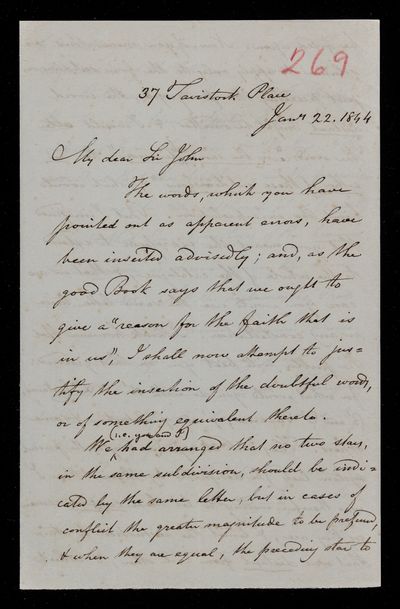 269
37 Tavistock Place
Jany 22. 1844
My dear Sir John
The words, which you have
pointed out as apparent errors, have
been inserted advisedly; and, as the
good Book says that we ought to
give a "reason for the faith that is
in us", I shall now attempt to jus=
tify the insertion of the doubtful words,
or of something equivalent thereto.
(i.e. you and I)
We had arranged that no two stars,
in the same subdivision, should be indi=
cated by the same letter, but in cases of
conflict the greater magnitude to be prefered,
& when they are equal, the preceding star to